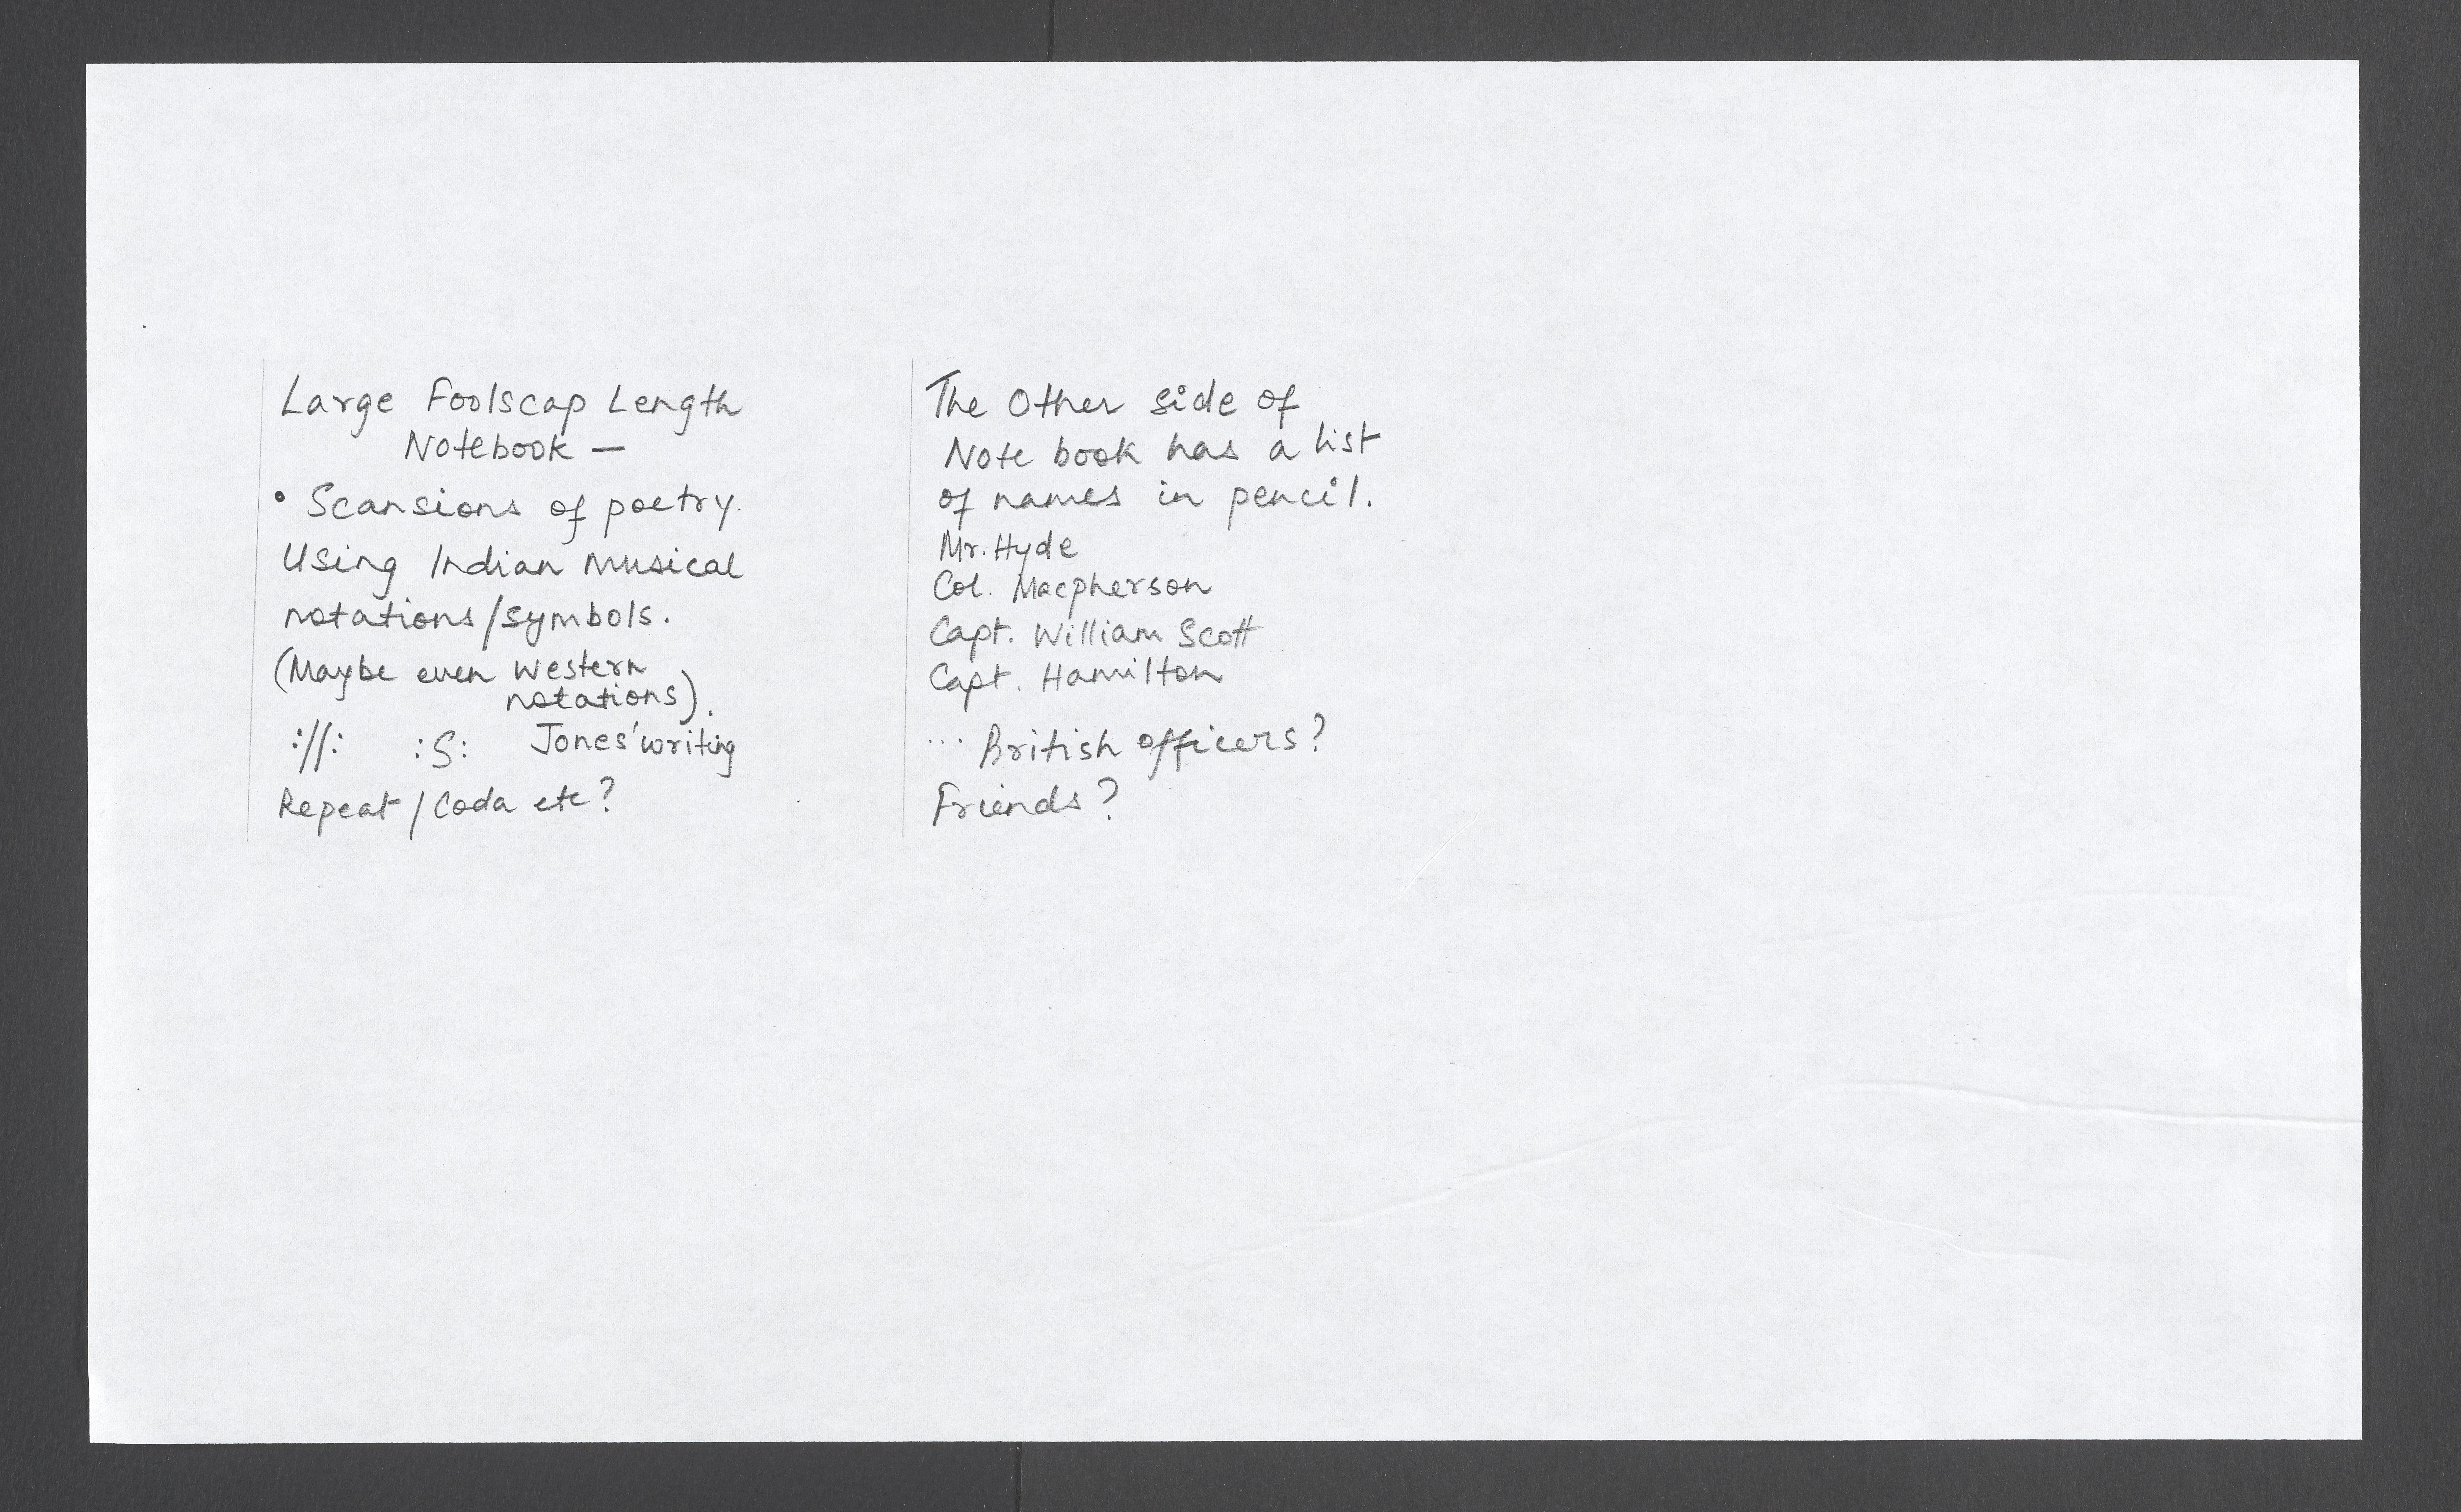 Large Foolscap Length
Notebook —
• Scansions of poetry.
Using Indian Musical
notations/symbols.
(Maybe even western
notations).
:||: :S: Jones' writing
Repeat / Coda etc?
The Other side of
Note book has a list
of names in pencil.
Mr. Hyde
Col. Macpherson
Capt. William Scott
Capt. Hamilton
... British officers?
Friends?